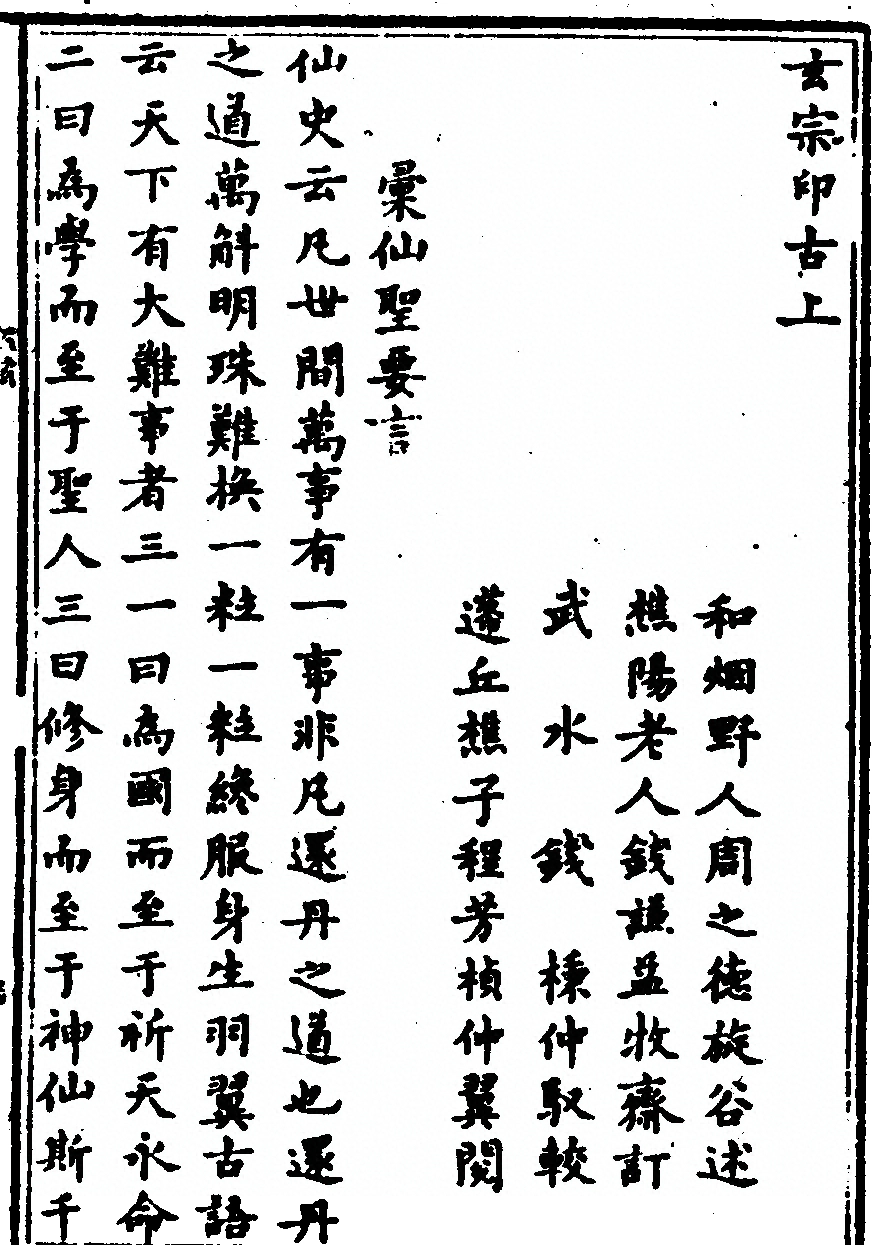 玄宗印古上
和烟野人周之德旋谷述
樵陽老人錢謙益牧齋訂
武水錢棅仲馭較
蓬丘樵子程芳楨仲翼閱
彙仙聖要言
仙史云凡世間萬事有一事非凡還丹之道也還丹
之道萬斛明珠難换一粒一粒終服身生羽翼古語
云天下有大難事者三一曰為國而至于祈天永命
二曰為學而至于聖人三曰修身而至于神仙斯千